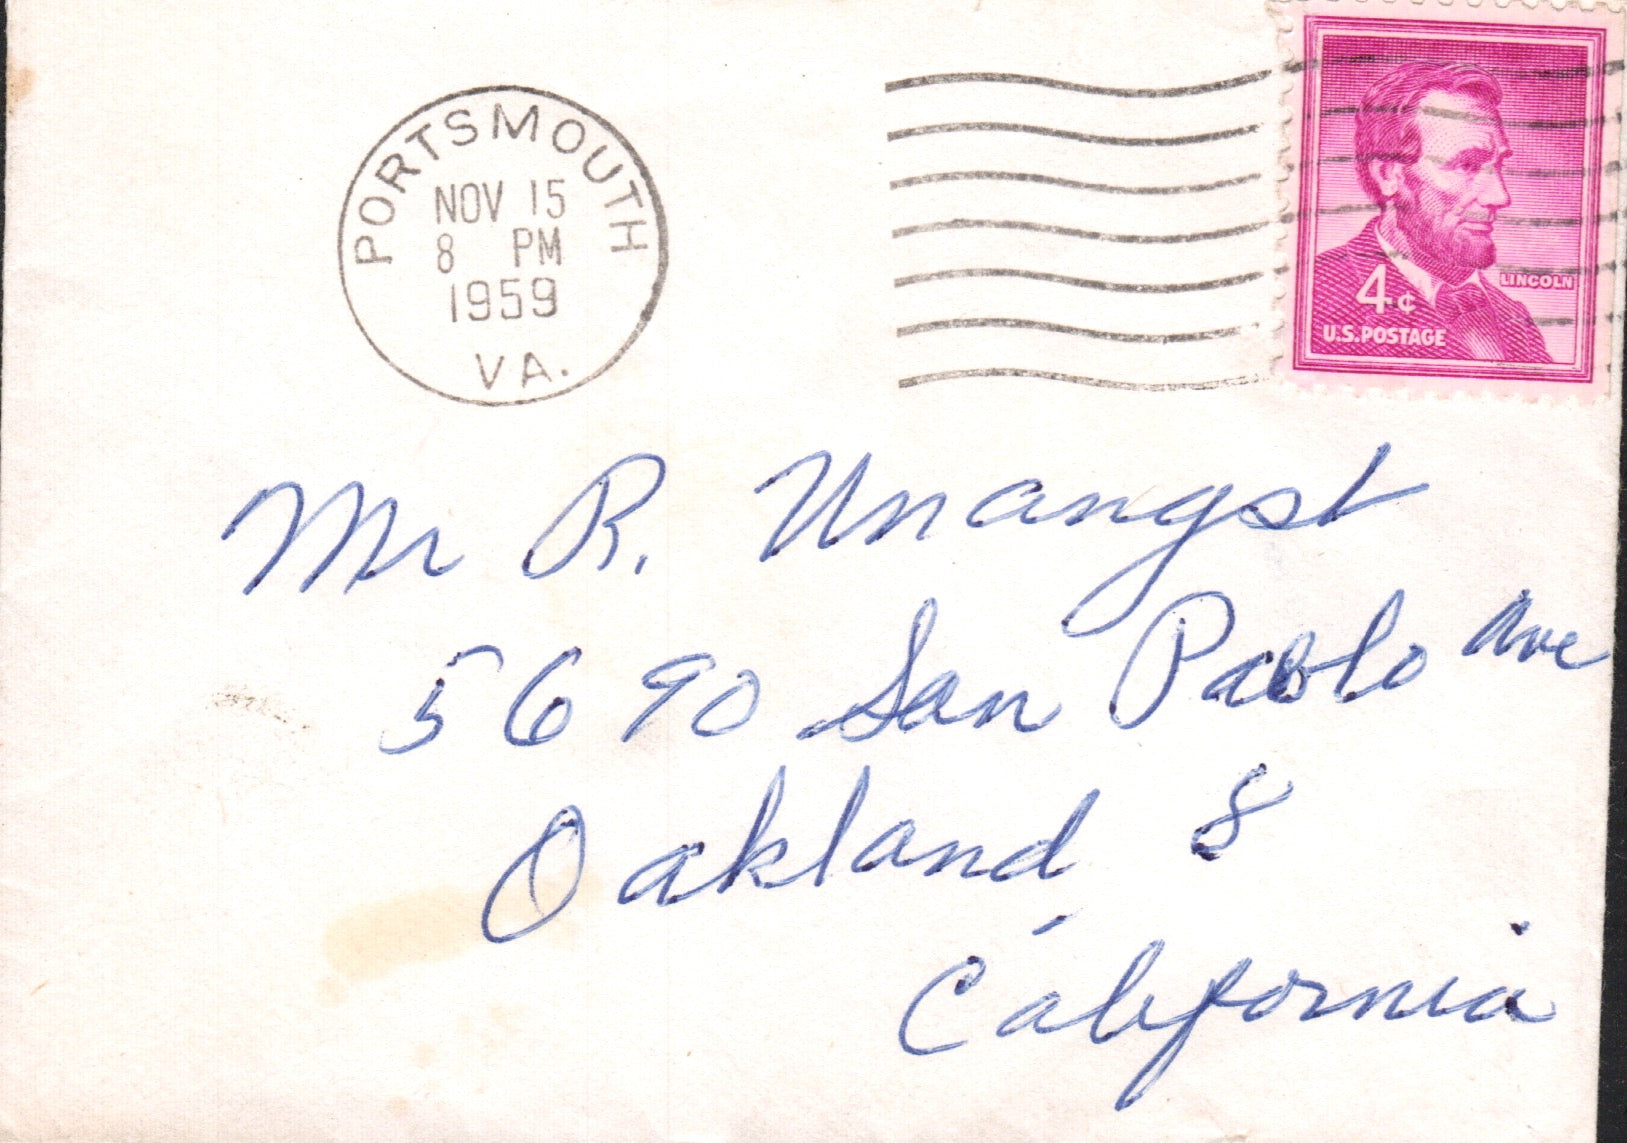 PORTSMOUTH
NOV 15
8 PM
1959
VA.
LINCOLN
4¢
U.S. POSTAGE
Mr R. Unangst
5690 San Pablo Ave
Oakland 8
California